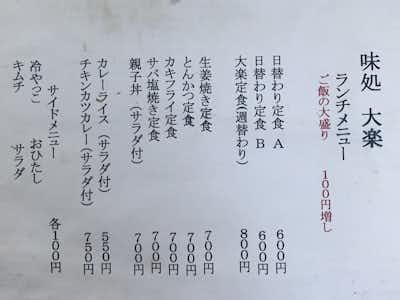 味処 大楽
ランチメニュー
ご飯の大盛り １００円増し
日替わり定食 Ａ ６００円
日替わり定食 Ｂ ６００円
大楽定食(週替わり) ８００円
生姜焼き定食 ７００円
とんかつ定食 ７００円
カキフライ定食 ７００円
サバ塩焼き定食 ７００円
親子丼 (サラダ付) ７００円
カレーライス (サラダ付) ５５０円
チキンカツカレー(サラダ付) ７５０円
サイドメニュー 各１００円
冷やっこ おひたし
キムチ サラダ